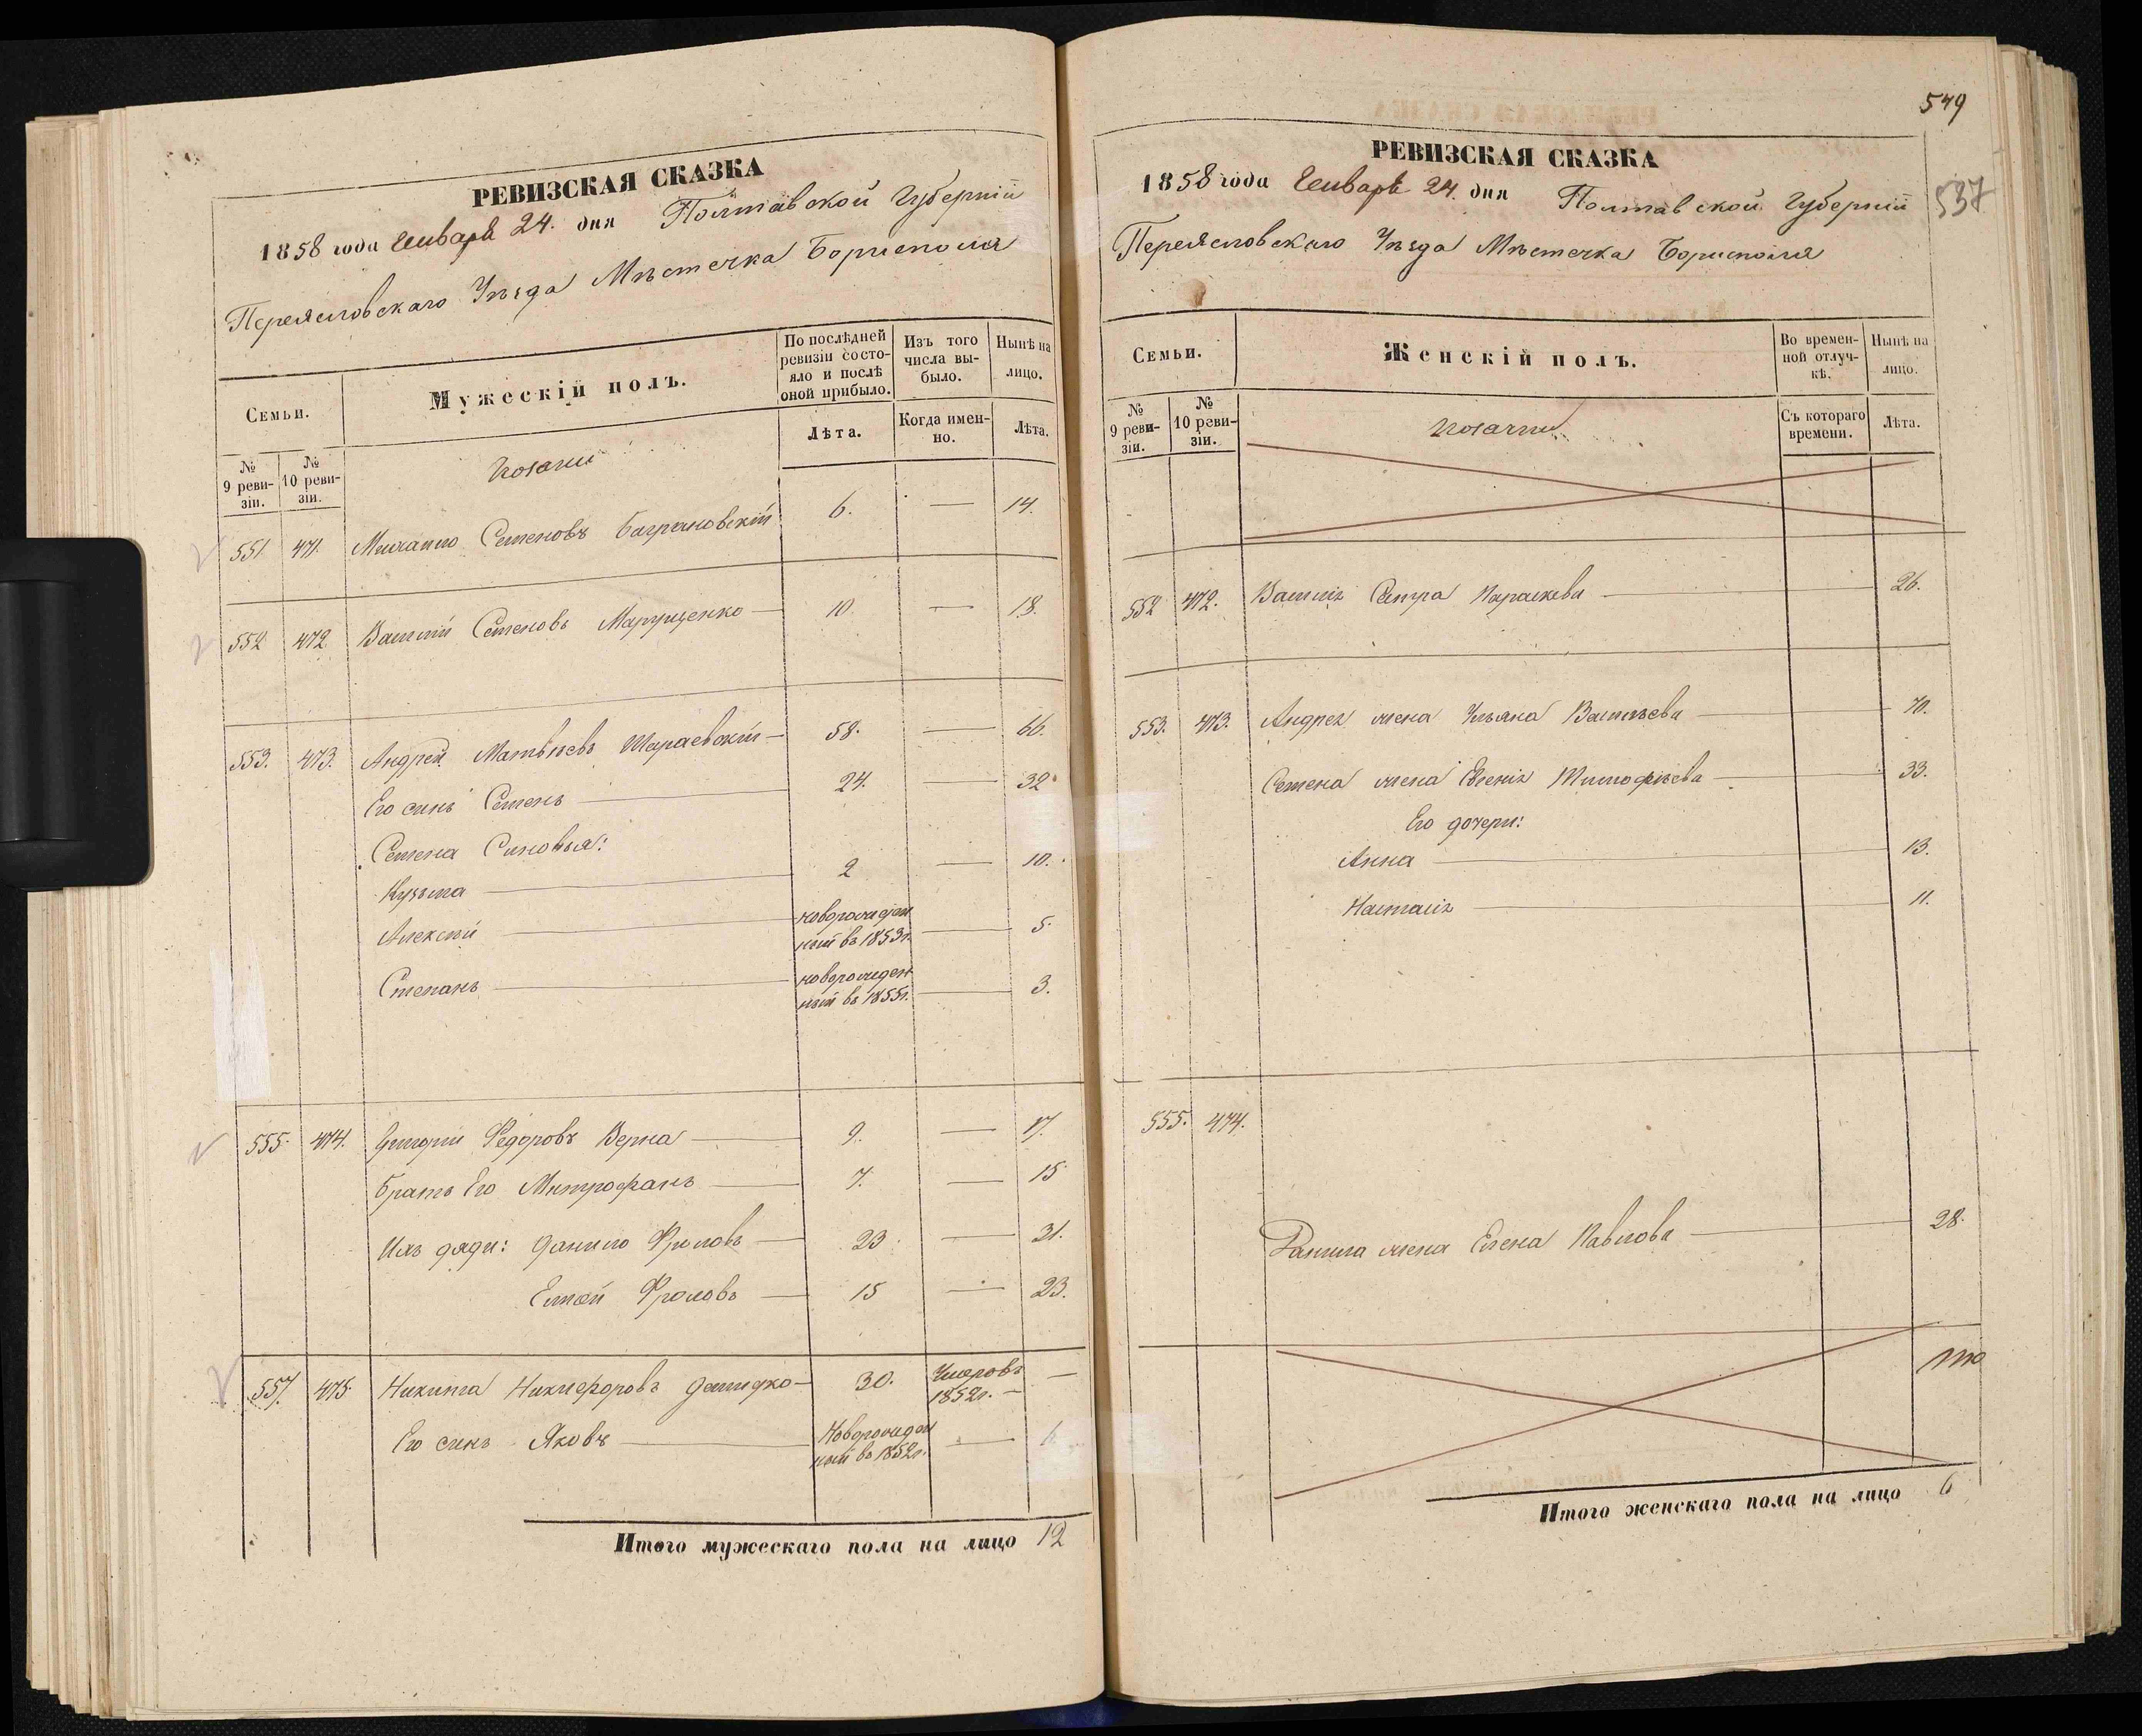 РЕВИЗСКАЯ СКАЗКА
1858 года Генваря 24. дня Полтавской Губерніи
Переясловскаго Уѣзда Мѣстечка Борисполя
Семьи.
Мужескій полъ.
По послѣдней ревизіи состояло и послѣ оной прибыло.
Изъ того числа выбыло.
Нынѣ на лицо.
№ 9 ревизіи.
№ 10 ревизіи.
Козаки
Лѣта.
Когда именно.
Лѣта.
551. 471. Михайло Семеновъ 6. — 14.
552 472 Василій Семеновъ Марущенко — 10. — 18.
553. 473. Андрей Матвѣевъ Шараевскій — 58. — 66.
Его сынъ Семенъ — 24. — 32.
Семена Сыновья:
Кузьма — 2 — 10.
Алексѣй — новорожденный въ 1853г. — 5.
Степанъ — новорожденный въ 1855г. — 3.
555. 474. Григорій Федоровъ Верна — 9. — 17.
Братъ Его Митрофанъ — 7. — 15
Ихъ дяди: Данило Фроловъ — 23. — 31.
Фроловъ — 15 — 23.
557. 475. Никита Никифоровъ Демидко — 30. Умеръ въ 1852г. — —
Его сынъ Яковъ — Новорожденный въ 1852г. — 6
Итого мужескаго пола на лицо 12
579
537
РЕВИЗСКАЯ СКАЗКА
1858 года Генваря 24. дня Полтавской Губерніи
Переясловскаго Уѣзда Мѣстечка Борисполя
Семьи.
Женскій полъ.
Во временной отлучкѣ.
Нынѣ на лицо.
№ 9 ревизіи.
№ 10 ревизіи.
Козачки
Съ котораго времени.
Лѣта.
552 472. Василія Сестра Параскева — 26.
553. 473. Андрея жена Ульяна Васильева — 70.
Семена жена Евгенія Тимофѣева — 33.
Его дочери:
Анна — 13.
Настасія — 11.
555. 474.
Данила жена Елена Павлова — 28.
Итого женскаго пола на лицо 6